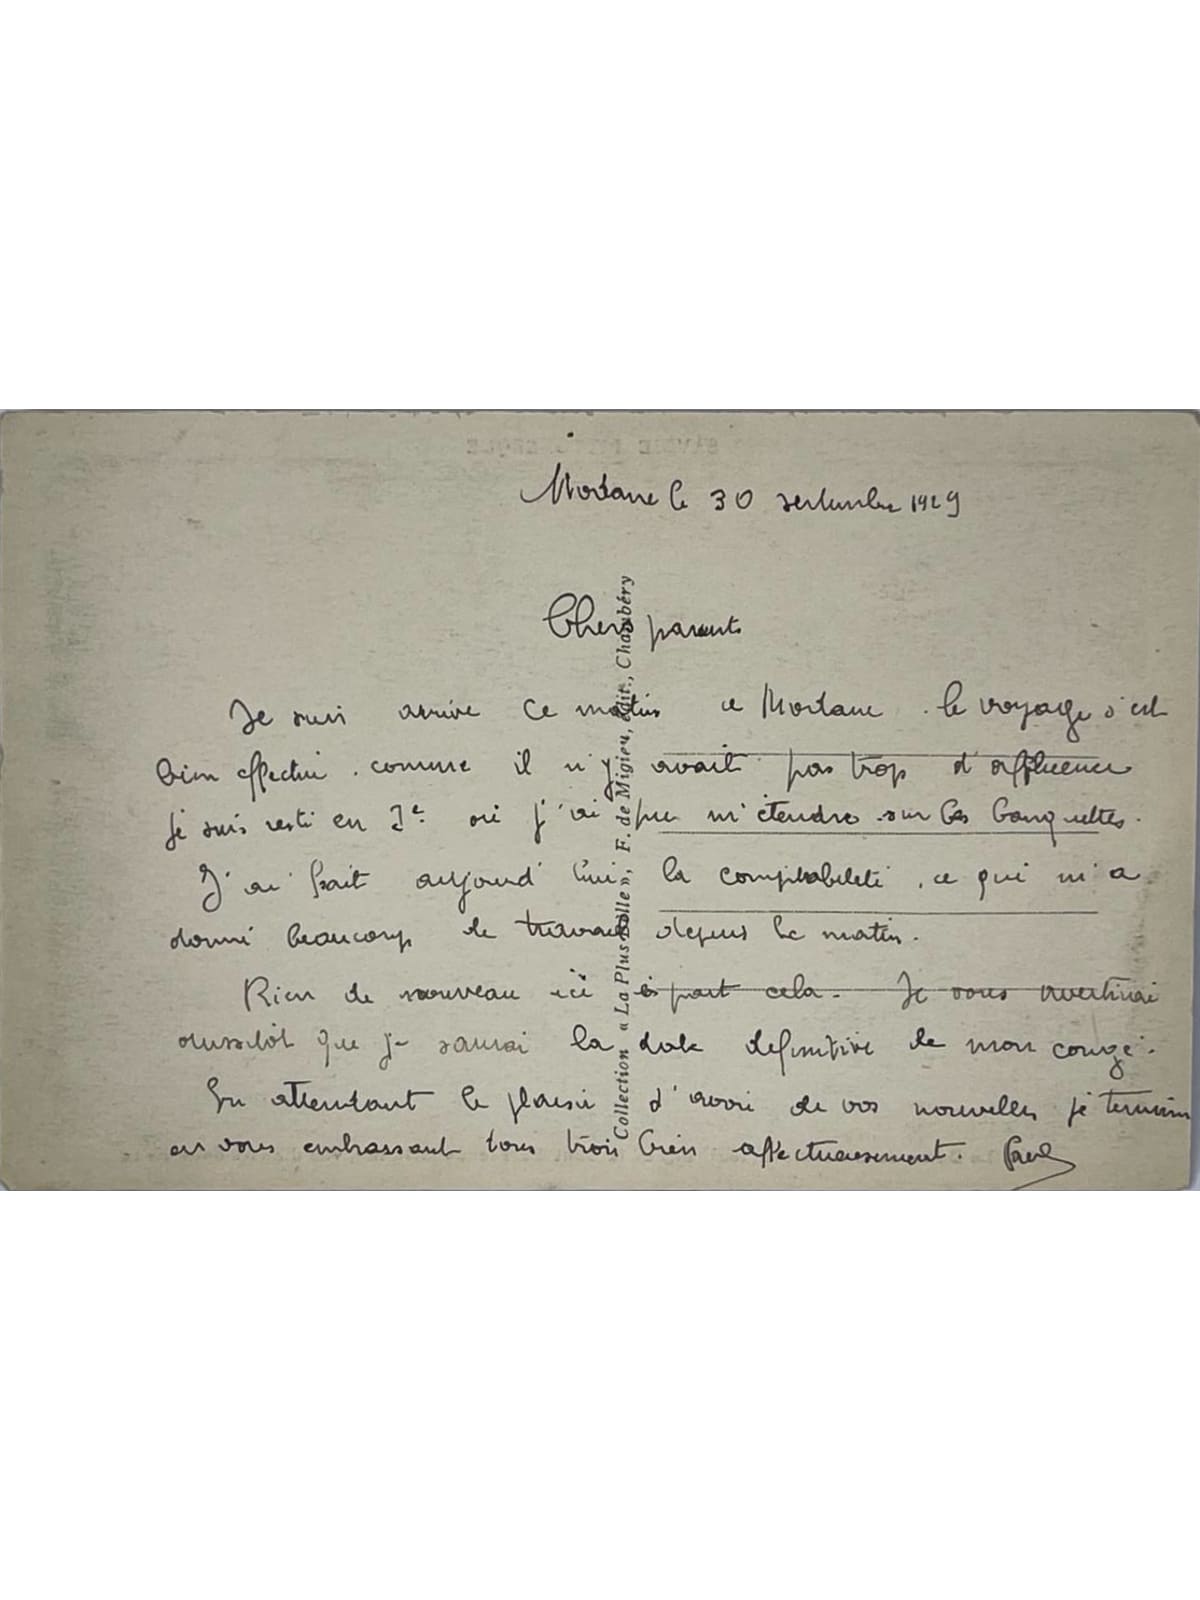 Modane le 30 septembre 1929
Chers parents
Je suis arrivé ce matin a Modane. le voyage s'est
bien effectué. comme il n'y avait pas trop d'affluence
je suis resté en 3e. où j'ai pu m'étendre sur les banquettes.
J'ai fait aujourd'hui la comptabilité, ce qui m'a
donné beaucoup de travail depuis le matin.
Rien de nouveau ici à part cela. Je vous avertirai
aussitôt que je saurai la date definitive de mon congé.
En attendant le plaisir d'avoir de vos nouvelles je termine
en vous embrassant tous trois bien affectueusement. Paul
Collection « La Plus Belle », F. de Migieu, édit., Chambéry